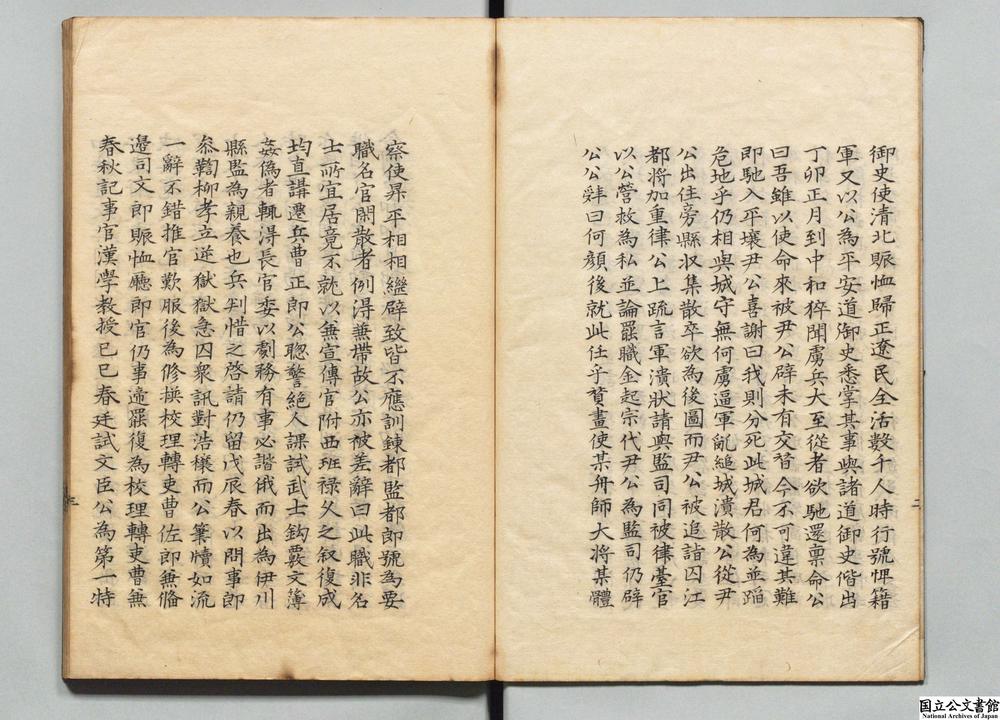 御史使清北賑恤歸正遼民全活数千人時行號牌籍
軍又以公為平安道御史悉掌其事與諸道御史偕出
丁卯正月到中和猝聞虜兵大至從者欲馳還稟命公
曰吾雖以使命來被尹公辟未有交替今不可違其難
即馳入平壤尹公喜謝曰我則分死此城君何為並蹈
危地乎仍相與城守無何虜逼軍亂縋城潰散公從尹
公出住旁縣收集散卒欲為後圖而尹公被追詣囚江
都将加重律公上疏言軍潰狀請與監司同被律臺官
以公營救為私並論罷職金起宗代尹公為監司仍辟
公公辭曰何顔後就此任乎贊畫使某舟師大将某體
二
察使昇平相相繼辟致皆不應訓鍊都監都郎號為要
職名官閑散者例得兼帶故公亦被差辭曰此職非名
士所宜居竟不就以兼宣傳官附西班禄久之叙復成
均直講遷兵曹正郎公聰警絕人課試武士鈎覈文簿
姦偽者輒得長官委以劇務有事必諮俄而出為伊川
縣監為親養也兵判惜之啓請仍留戊辰春以問事郎
叅鞫柳孝立逆獄獄急囚衆訊對浩穰而公筆牘如流
一辭不錯推官歎服後為修撰校理轉吏曹佐郎兼備
邊司文郎賑恤廳郎官仍事遞罷復為校理轉吏曹兼
春秋記事官漢學教授己巳春廷試文臣公為第一特
三
国立公文書館
National Archives of Japan